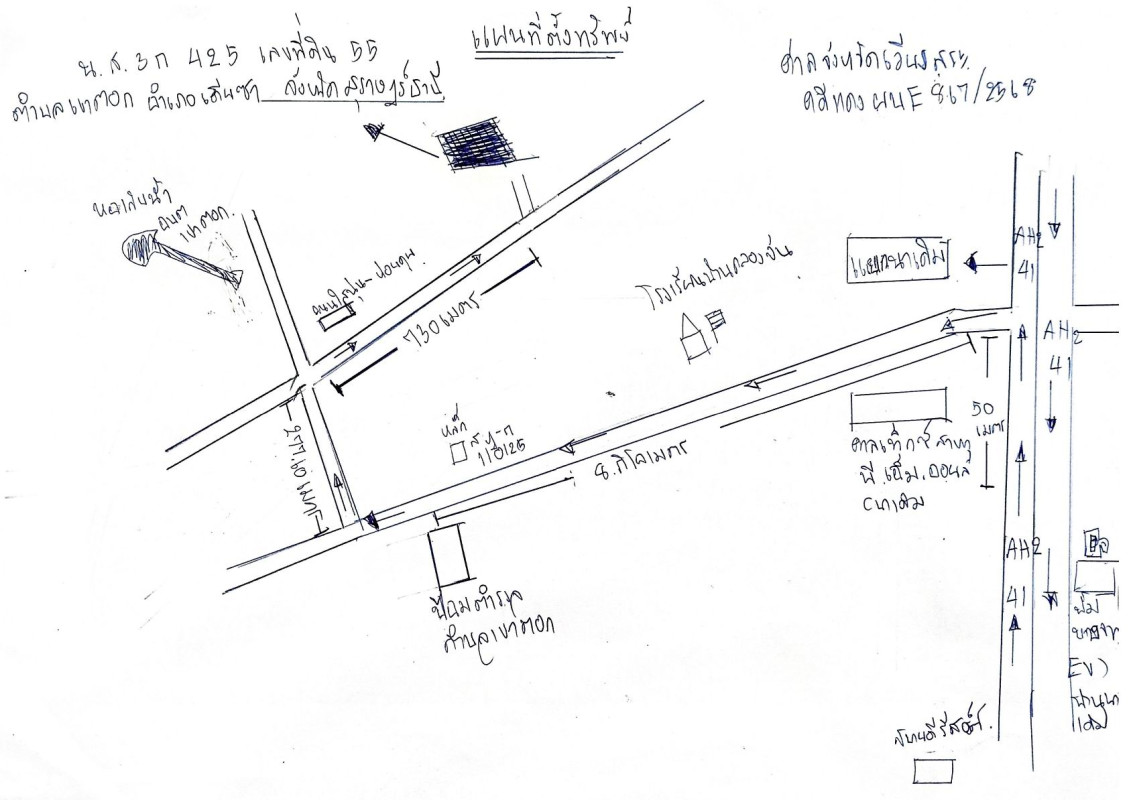 แผนที่ตั้งทรัพย์
น.ส.3ก 425 เลขที่ดิน 55
ตำบลเขาตอก อำเภอเคียนซา จังหวัดสุราษฎร์ธานี
ศาลจังหวัดเวียงสระ
คดีแดง ผบE 867/2568
หอเก็บน้ำ
อบต
เขาตอก
730 เมตร
โรงเรียนบ้านคลองจัน
แยกนาเดิม
AH2
41
AH2
41
หลัก
สฎ-ถ
110125
8 กิโลเมตร
277.60 เมตร
50
เมตร
พี.เอ็ม.ออยล์
ป้อมตำรวจ
ตำบลเขาตอก
AH2
41
ปั๊ม
บางจาก
EV)
บ้านนา
เดิม
สบายดีรีสอร์ท